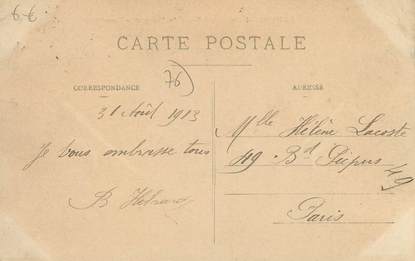 6-€
CARTE POSTALE
76
CORRESPONDANCE
ADRESSE
31 Août 1913
Je vous embrasse tous
B
Mlle Hélène Lacoste
49 Bd Picpus
49
Paris